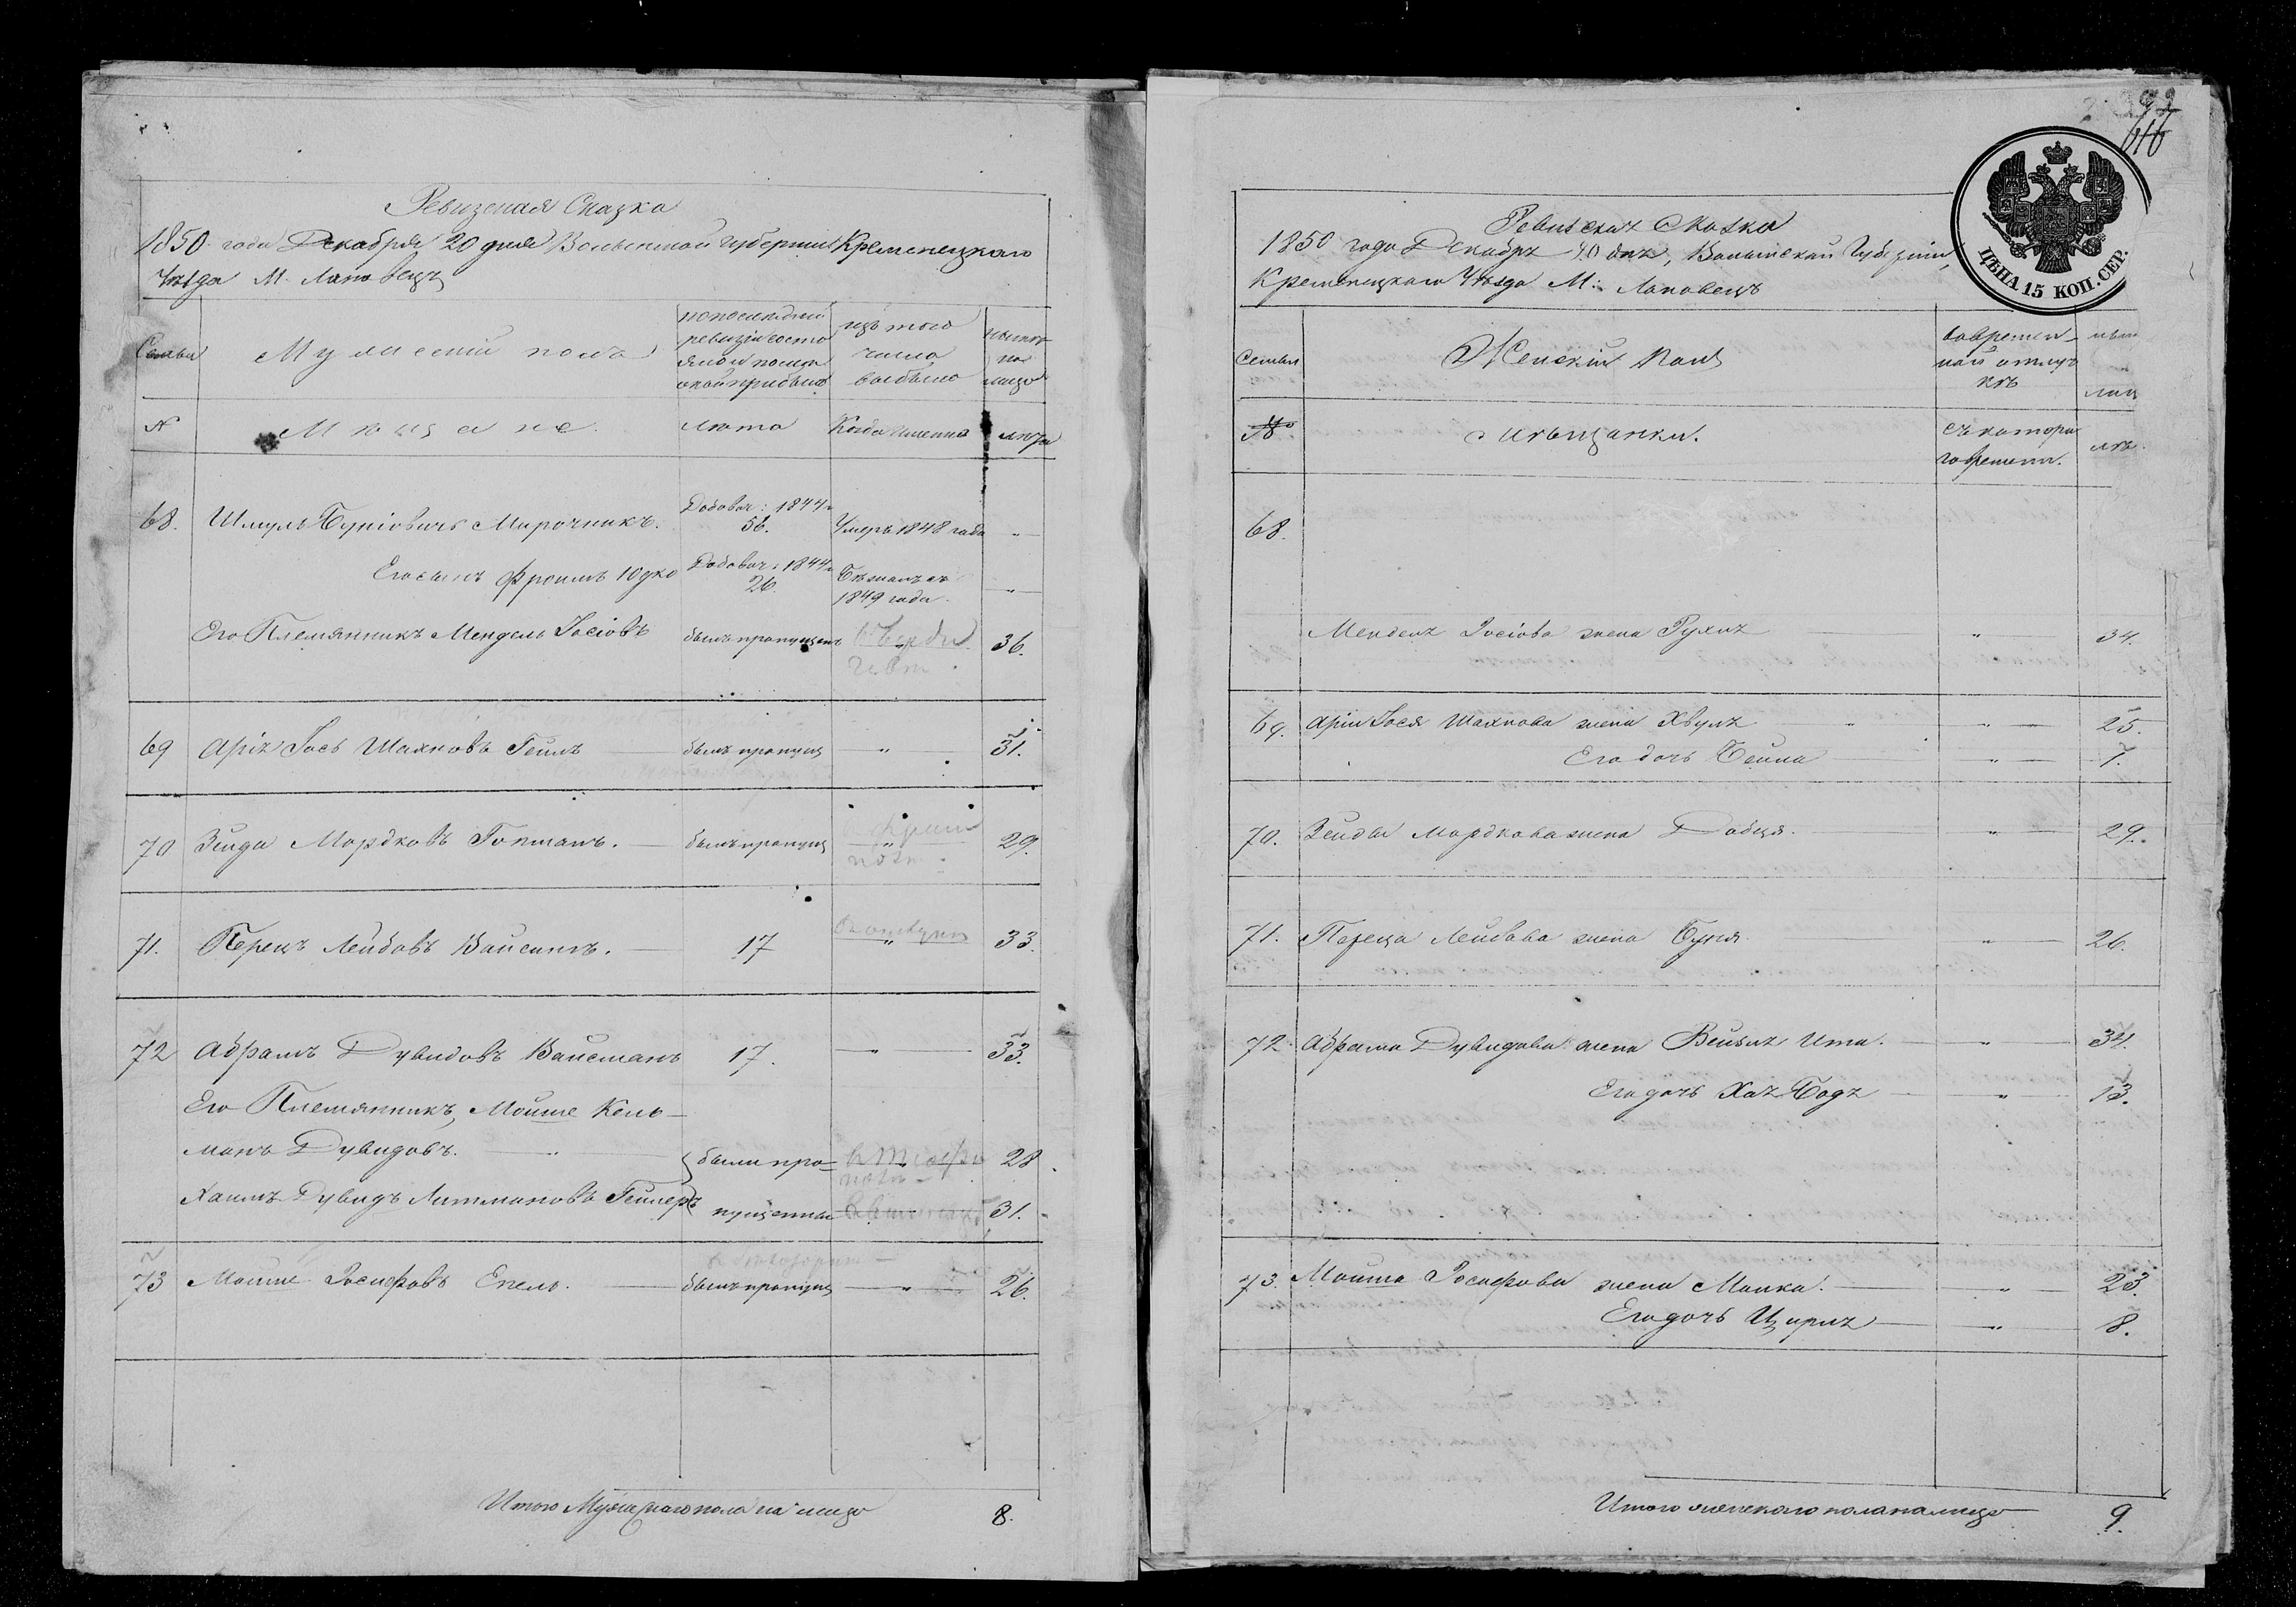 Ревизская Сказка
1850 года Декабря 20 дня Волынской Губернии Кременецкого
Уѣзда М. Лановецъ
Семьи
Мужескій полъ
по последней ревизіи состояло и после оной прибыло
изъ того числа выбыло
ныне на лицо
№
Мѣщане.
лѣта
Когда именно
лѣта
68. Шмуль Буніовичъ Мирочникъ. Добовоч: 1844 56. Умеръ 1848 года "
Его сынъ Фроимъ Юдко Добовоч: 1844 26. Бежалъ съ 1849 года. "
Его Племянникъ Мендель Іосіовъ былъ пропущенъ 36.
69 Аріи Іось Шахновъ Гейлъ былъ пропущ " 31.
70 Зейда Мордковъ Гопманъ. былъ пропущ " 29.
71. Перецъ Лейбовъ Вайсинъ. 17 " 33.
72 Абрамъ Дувидовъ Вайсманъ 17. " 33.
Его Племянникъ, Мойше Кель-
манъ Дувидовъ. " были про- 28.
Хаимъ Дувидъ Литмановъ Гейлеръ пущенны 31.
73 Мойше Іосифовъ Екель. былъ пропущ " 26.
Итого Мужескаго пола на лицо 8.
616
ЦѢНА 15 КОП. СЕР.
Ревизская Сказка
1850 года Декабря 20 дня, Волынской Губерніи,
Кременецкаго Уѣзда М: Лановецъ
Семьи
Женскій Полъ
во временной отлучкѣ
№
Мѣщанки.
съ котораго времени.
лѣ
68.
Менделя Іосіова жена Рухля " 34.
69. Аріи Іося Шахнова жена Хвуля " 25.
Его дочь Бейла " 7.
70. Зейды Мордкова жена Добця. " 29.
71. Переца Лейбова жена Буня. " 26.
72. Абрама Дувидова жена Вейля Ита. " 34.
Его дочь Хая Бодя " 13.
73. Мойша Іосифова жена Малка. " 23.
Его дочь Цирля " 8.
Итого женскаго пола на лицо 9.